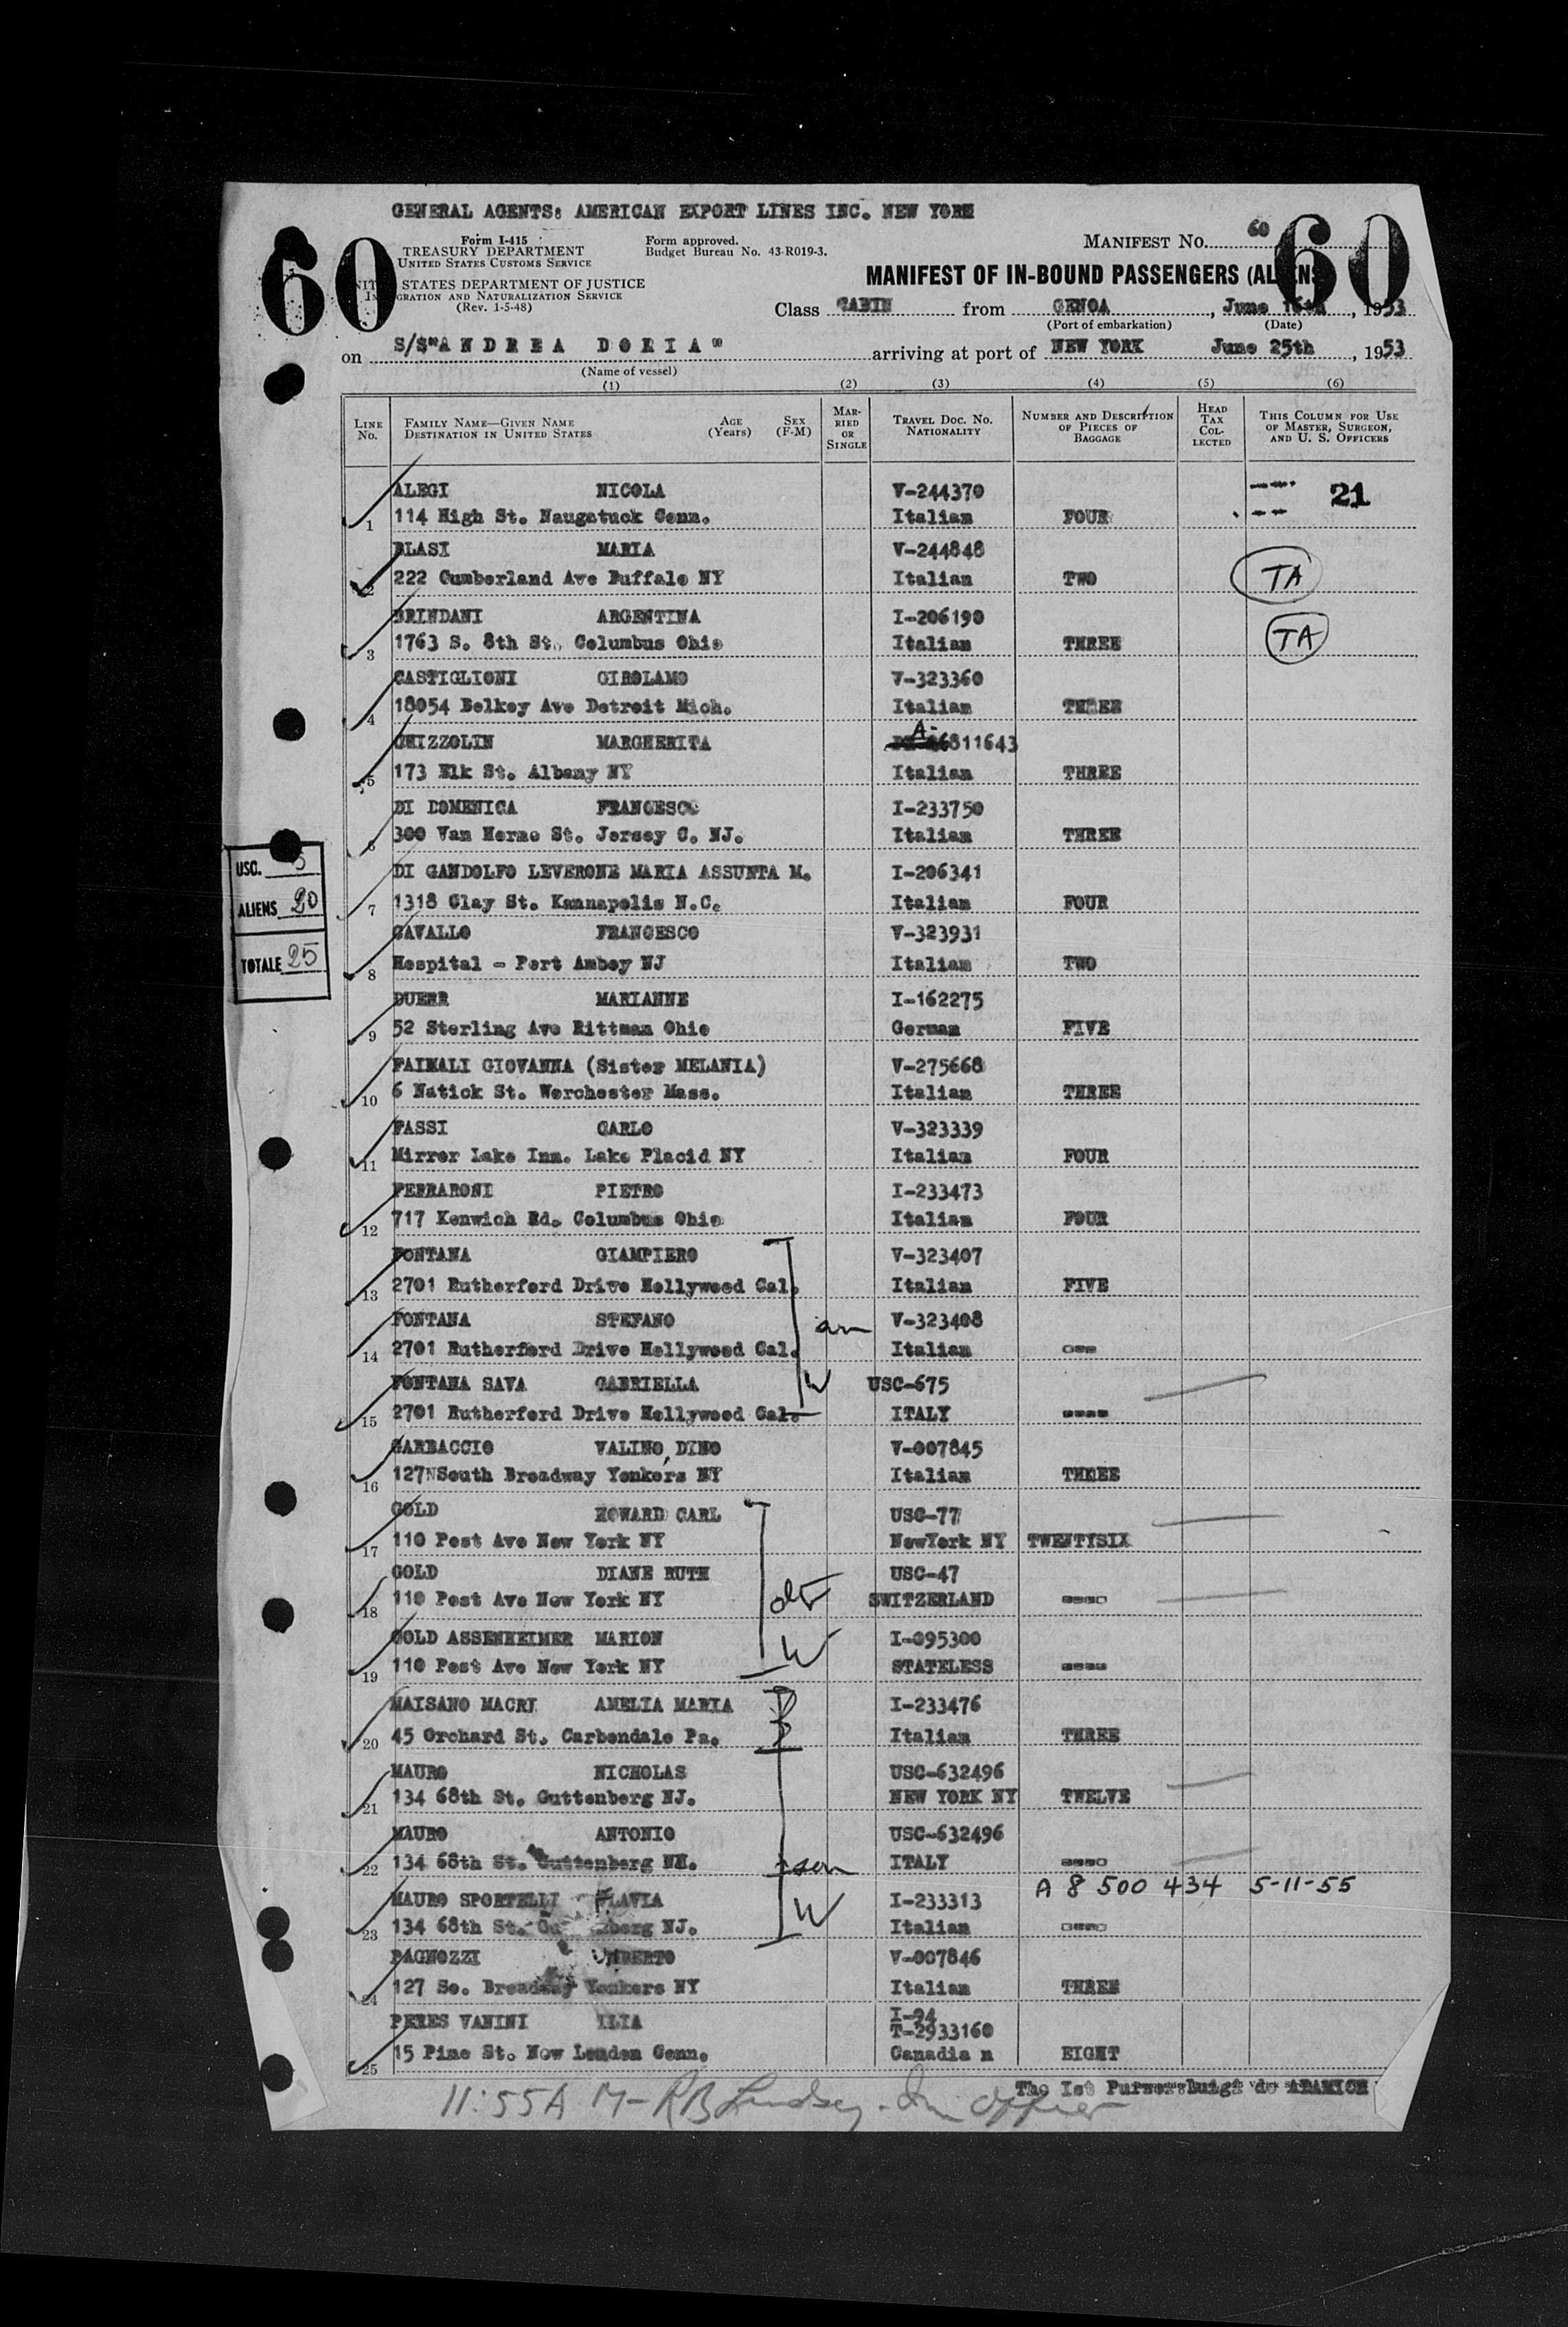 GENERAL AGENTS: AMERICAN EXPORT LINES INC. NEW YORK
60
60
Form I-415
TREASURY DEPARTMENT
UNITED STATES CUSTOMS SERVICE
STATES DEPARTMENT OF JUSTICE
GRATION AND NATURALIZATION SERVICE
(Rev. 1-5-48)
Form approved.
Budget Bureau No. 43-R019-3.
MANIFEST NO. 60
MANIFEST OF IN-BOUND PASSENGERS (ALIENS
Class CABIN from GENOA, June 16th, 1953
(Port of embarkation) (Date)
on S/S"ANDREA DORIA" arriving at port of NEW YORK June 25th, 1953
(Name of vessel)
(1) (2) (3) (4) (5) (6)
LINE No. FAMILY NAME—GIVEN NAME DESTINATION IN UNITED STATES AGE (Years) SEX (F-M) MARRIED OR SINGLE TRAVEL DOC. NO. NATIONALITY NUMBER AND DESCRIPTION OF PIECES OF BAGGAGE HEAD TAX COLLECTED THIS COLUMN FOR USE OF MASTER, SURGEON, AND U. S. OFFICERS
ALEGI NICOLA V-244370 21
1 114 High St. Naugatuck Conn. Italian FOUR
BLASI MARIA V-244848
2 222 Cumberland Ave Buffalo NY Italian TWO TA
BRINDANI ARGENTINA I-206190
3 1763 S. 8th St. Columbus Ohio Italian THREE TA
CASTIGLIONI GIROLAMO V-323360
4 18054 Belkey Ave Detroit Mich. Italian THREE
GHIZZOLIN MARGHERITA A-6811643
5 173 Elk St. Albany NY Italian THREE
DI DOMENICA FRANCESCO I-233750
6 300 Van Horne St. Jersey C. NJ. Italian THREE
DI GANDOLFO LEVERONE MARIA ASSUNTA M. I-206341
7 1318 Clay St. Kannapolis N.C. Italian FOUR
CAVALLO FRANCESCO V-323931
8 Hospital - Port Amboy NJ Italian TWO
DUERR MARIANNE I-162275
9 52 Sterling Ave Rittman Ohio German FIVE
FAIMALI GIOVANNA (Sister MELANIA) V-275668
10 6 Natick St. Worchester Mass. Italian THREE
FASSI CARLO V-323339
11 Mirror Lake Inn. Lake Placid NY Italian FOUR
FERRARONI PIETRO I-233473
12 717 Kenwich Rd. Columbus Ohio Italian FOUR
FONTANA GIAMPIERO V-323407
13 2701 Rutherford Drive Hollywood Cal. Italian FIVE
FONTANA STEFANO V-323408
14 2701 Rutherford Drive Hollywood Cal. Italian
FONTANA SAVA GABRIELLA W USC-675
15 2701 Rutherford Drive Hollywood Cal. ITALY
GARBACCIO VALINO, DINO V-007845
16 127NSouth Broadway Yonkers NY Italian THREE
GOLD HOWARD CARL USC-77
17 110 Post Ave New York NY NewYork NY TWENTYSIX
GOLD DIANE RUTH USC-47
18 110 Post Ave New York NY SWITZERLAND
GOLD ASSENHEIMER MARION I-095300
19 110 Post Ave New York NY W STATELESS
MAISANO MACRI AMELIA MARIA I-233476
20 45 Orchard St. Carbondale Pa. Italian THREE
MAURO NICHOLAS USC-632496
21 134 68th St. Guttenberg NJ. NEW YORK NY TWELVE
MAURO ANTONIO USC-632496
22 134 68th St. Guttenberg NH. son ITALY
A 8 500 434 5-11-55
MAURO SPORTELLI FLAVIA W I-233313
23 134 68th St. berg NJ. Italian
PAGNOZZI UMBERTO V-007846
24 127 So. Broadway Yonkers NY Italian THREE
PERES VANINI ILIA I-94 T-2933160
25 15 Pine St. New London Conn. Canadia n EIGHT
USC. 5
ALIENS 20
TOTALE 25
The Ist Purser
11:55A M - RB Lindsey - Im Officer